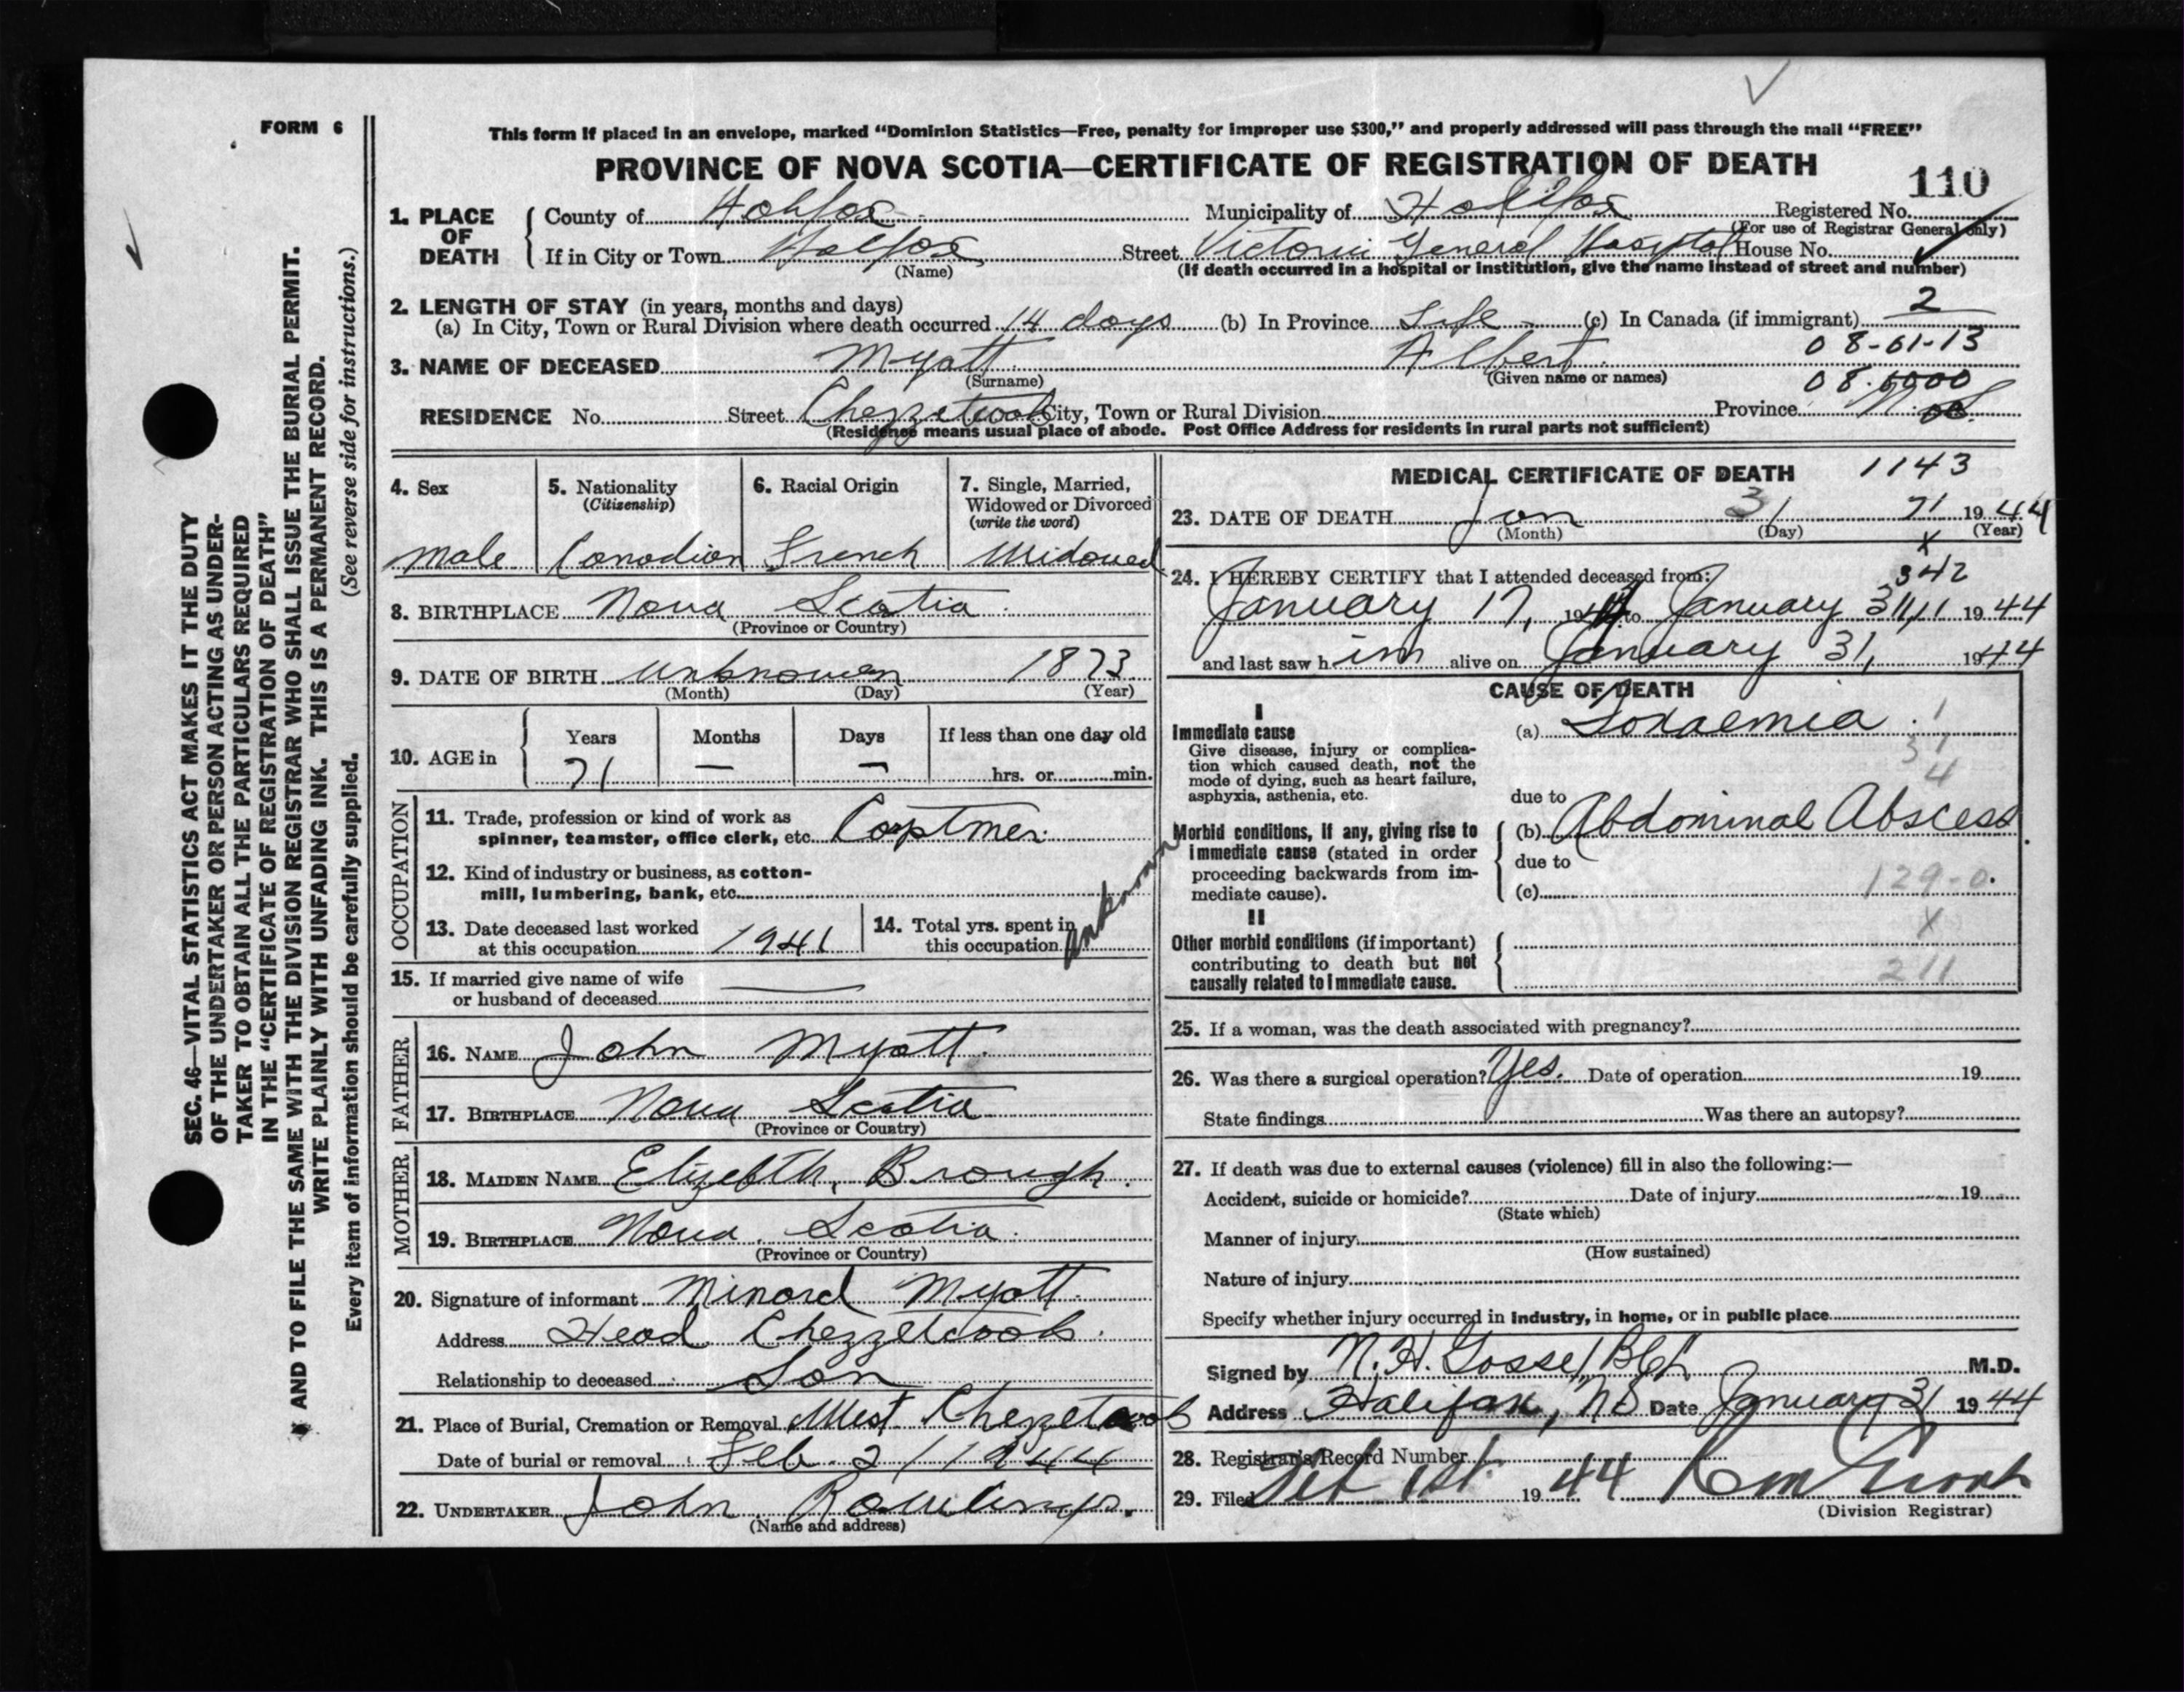 FORM 6
This form if placed in an envelope, marked “Dominion Statistics—Free, penalty for improper use $300,” and properly addressed will pass through the mail “FREE”
PROVINCE OF NOVA SCOTIA—CERTIFICATE OF REGISTRATION OF DEATH
110
1. PLACE OF DEATH
County of Halifax Municipality of Halifax Registered No.
(For use of Registrar General only)
If in City or Town Halifax Street Victoria General Hospital House No.
(Name) (If death occurred in a hospital or institution, give the name instead of street and number)
2. LENGTH OF STAY (in years, months and days)
(a) In City, Town or Rural Division where death occurred 14 days (b) In Province Life (c) In Canada (if immigrant) 2
08-61-13
3. NAME OF DECEASED Myatt Albert
(Surname) (Given name or names) 08.6000
RESIDENCE No. Street Chezzetcook City, Town or Rural Division Province N.S.
(Residence means usual place of abode. Post Office Address for residents in rural parts not sufficient)
SEC. 46—VITAL STATISTICS ACT MAKES IT THE DUTY
OF THE UNDERTAKER OR PERSON ACTING AS UNDER-
TAKER TO OBTAIN ALL THE PARTICULARS REQUIRED
IN THE “CERTIFICATE OF REGISTRATION OF DEATH”
AND TO FILE THE SAME WITH THE DIVISION REGISTRAR WHO SHALL ISSUE THE BURIAL PERMIT.
WRITE PLAINLY WITH UNFADING INK. THIS IS A PERMANENT RECORD.
Every item of information should be carefully supplied. (See reverse side for instructions.)
4. Sex
Male
5. Nationality
(Citizenship)
Canadian
6. Racial Origin
French
7. Single, Married,
Widowed or Divorced
(write the word)
Widowed
8. BIRTHPLACE Nova Scotia
(Province or Country)
9. DATE OF BIRTH unknown 1873
(Month) (Day) (Year)
10. AGE in
Years Months Days If less than one day old
71 — — hrs. or min.
OCCUPATION
11. Trade, profession or kind of work as
spinner, teamster, office clerk, etc.
12. Kind of industry or business, as cotton-
mill, lumbering, bank, etc.
13. Date deceased last worked
at this occupation 1941
14. Total yrs. spent in
this occupation unknown
15. If married give name of wife
or husband of deceased —
FATHER
16. NAME John Myatt.
17. BIRTHPLACE Nova Scotia
(Province or Country)
MOTHER
18. MAIDEN NAME Elizebth, Brough.
19. BIRTHPLACE Nova Scotia.
(Province or Country)
20. Signature of informant Minard Myatt.
Address Head Chezzetcook.
Relationship to deceased Son
21. Place of Burial, Cremation or Removal West Chezzetcook
Date of burial or removal Feb. 2 / 1944
22. UNDERTAKER John Rawlings.
(Name and address)
MEDICAL CERTIFICATE OF DEATH 1143
23. DATE OF DEATH Jan 31 71 1944
(Month) (Day) (Year)
x
24. I HEREBY CERTIFY that I attended deceased from: 342
January 17, 1944 to January 31, 1944
and last saw him alive on January 31, 1944
CAUSE OF DEATH
I
Immediate cause
Give disease, injury or complica-
tion which caused death, not the
mode of dying, such as heart failure,
asphyxia, asthenia, etc.
(a) Toxaemia 1
31
4
due to
Morbid conditions, if any, giving rise to
immediate cause (stated in order
proceeding backwards from im-
mediate cause).
(b) Abdominal Abscess
due to
(c) 129-0.
II
Other morbid conditions (if important)
contributing to death but not
causally related to immediate cause.
x
211
25. If a woman, was the death associated with pregnancy?
26. Was there a surgical operation? Yes. Date of operation 19
State findings Was there an autopsy?
27. If death was due to external causes (violence) fill in also the following:—
Accident, suicide or homicide? Date of injury 19
(State which)
Manner of injury
(How sustained)
Nature of injury
Specify whether injury occurred in industry, in home, or in public place
Signed by N. H. Gosse / M.D.
Address Halifax, NS Date January 31 1944
28. Registrar's Record Number
29. Filed Feb 1st. 1944
(Division Registrar)